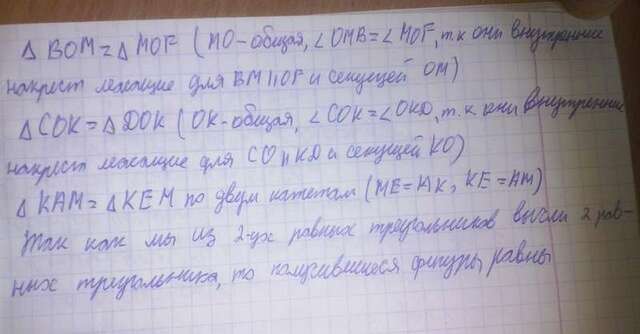 Δ BOM = Δ MOF (MO-общая, ∠OMB = ∠MOF, т.к они внутренние
накрест лежащие для BM || OF и секущей OM)
Δ COK = Δ DOK (OK-общая, ∠COK = ∠OKD, т.к они внутренние
накрест лежащие для CO || KD и секущей KO)
Δ KAM = Δ KEM по двум катетам (ME = AK, KE = AM)
Так как мы из 2-ух равных треугольников вычли 2 рав-
ных треугольника, то получившиеся фигуры равны